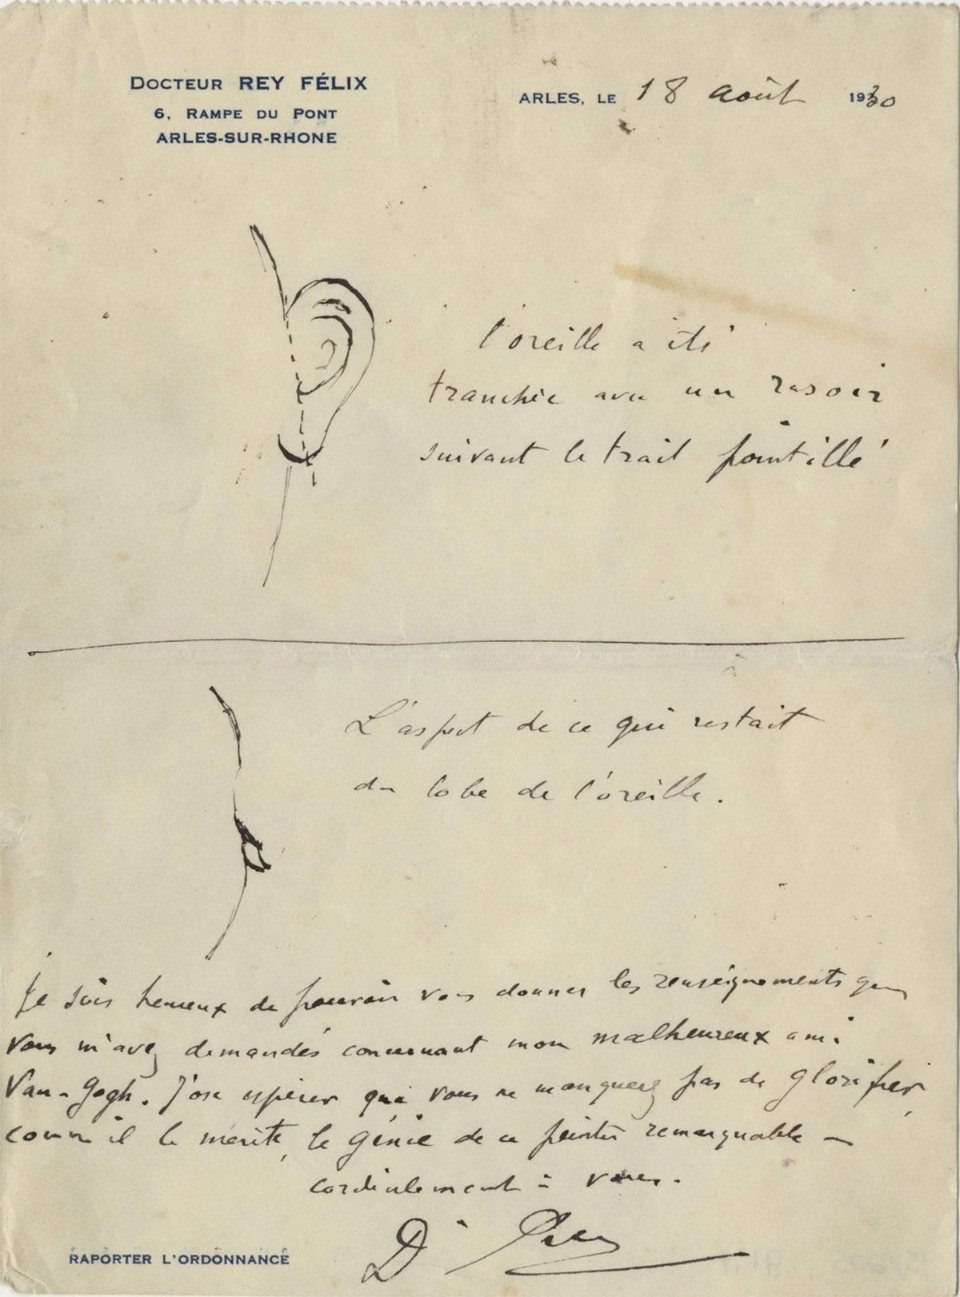 DOCTEUR REY FÉLIX
6, RAMPE DU PONT
ARLES-SUR-RHONE
ARLES, LE 18 août 1930
l'oreille a été
tranchée avec un rasoir
suivant le trait pointillé
L'aspect de ce qui restait
du lobe de l'oreille.
Je suis heureux de pouvoir vous donner les renseignements que
vous m'avez demandés concernant mon malheureux ami
Van-Gogh. J'ose espérer que vous ne manquerez pas de glorifier
comme il le mérite, le génie de ce peintre remarquable —
cordialement à vous.
Dr Rey
RAPORTER L'ORDONNANCE